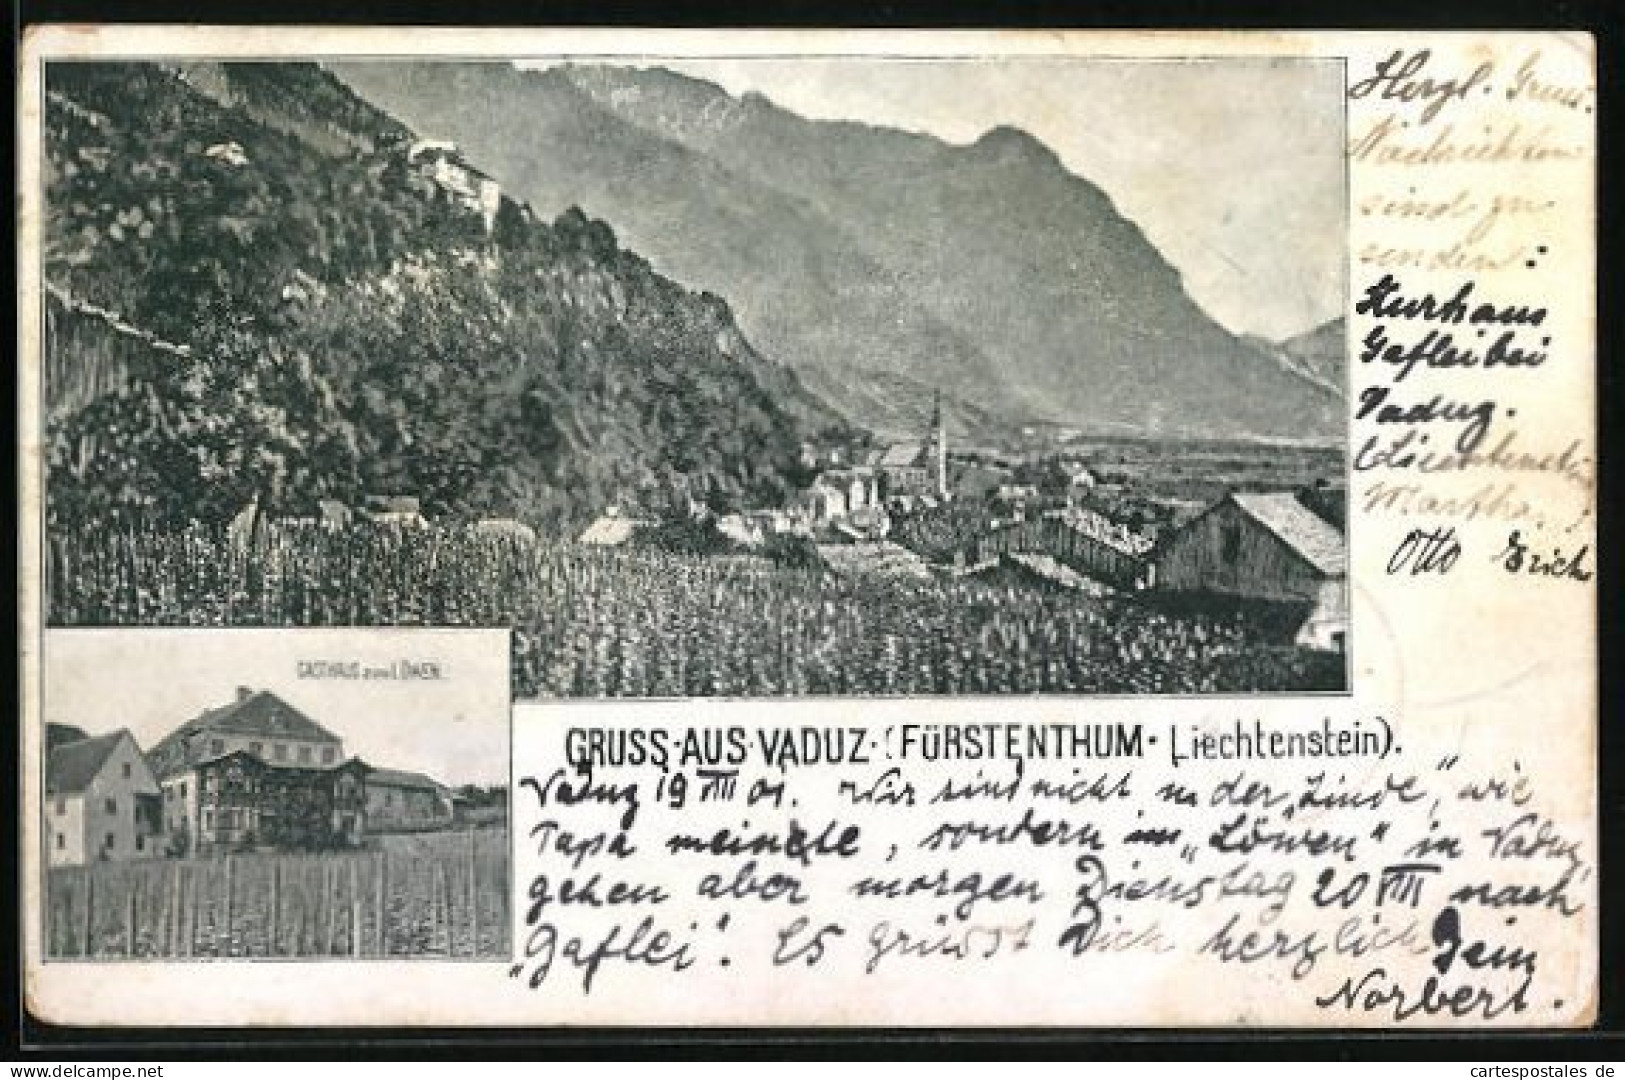 Herzl. Gruss.
Nachrichten
sind zu
senden:
Kurhaus
Gaflei bei
Vaduz.
(Liechtenstein
Martha.
Otto Erich
GASTHAUS zum LÖWEN.
GRUSS·AUS·VADUZ·(FÜRSTENTHUM·Liechtenstein).
Vaduz 19 VIII 01. Wir sind nicht in der „Linde“, wie
Papa meinete, sondern im „Löwen“ in Vaduz,
gehen aber morgen Dienstag 20 VIII nach
„Gaflei“. Es grüsst Dich herzlich Dein
Norbert.
cartespostales de